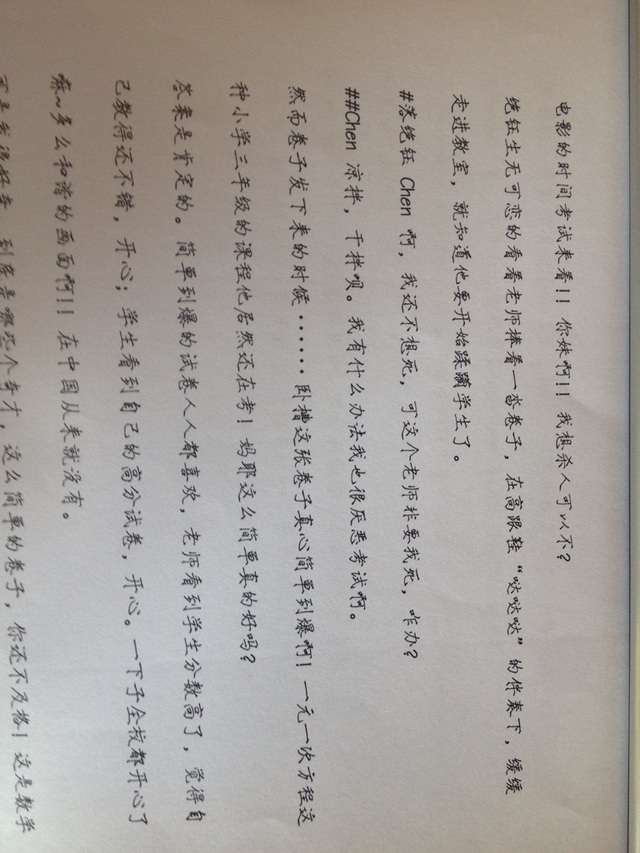 电影的时间考试来看!! 你妹啊!! 我想杀人可以不?
绝钰生无可恋的看着老师捧着一沓卷子，在高跟鞋“哒哒哒”的伴奏下，缓缓
走进教室，就知道他要开始蹂躏学生了。
#落绝钰 Chen 啊，我还不想死，可这个老师非要我死，咋办?
##Chen 凉拌，干拌呗。我有什么办法我也很厌恶考试啊。
然而卷子发下来的时候······卧槽这张卷子真心简单到爆啊! 一元一次方程这
种小学三年级的课程他居然还在考! 妈耶这么简单真的好吗?
答案是肯定的。简单到爆的试卷人人都喜欢，老师看到学生分数高了，觉得自
己教得还不错，开心；学生看到自己的高分试卷，开心。一下子全校都开心了
嘛~多么和谐的画面啊!!! 在中国从来就没有。
可是我很好奇，到底是哪个奇才，这么简单的卷子，你还不及格! 这是数学